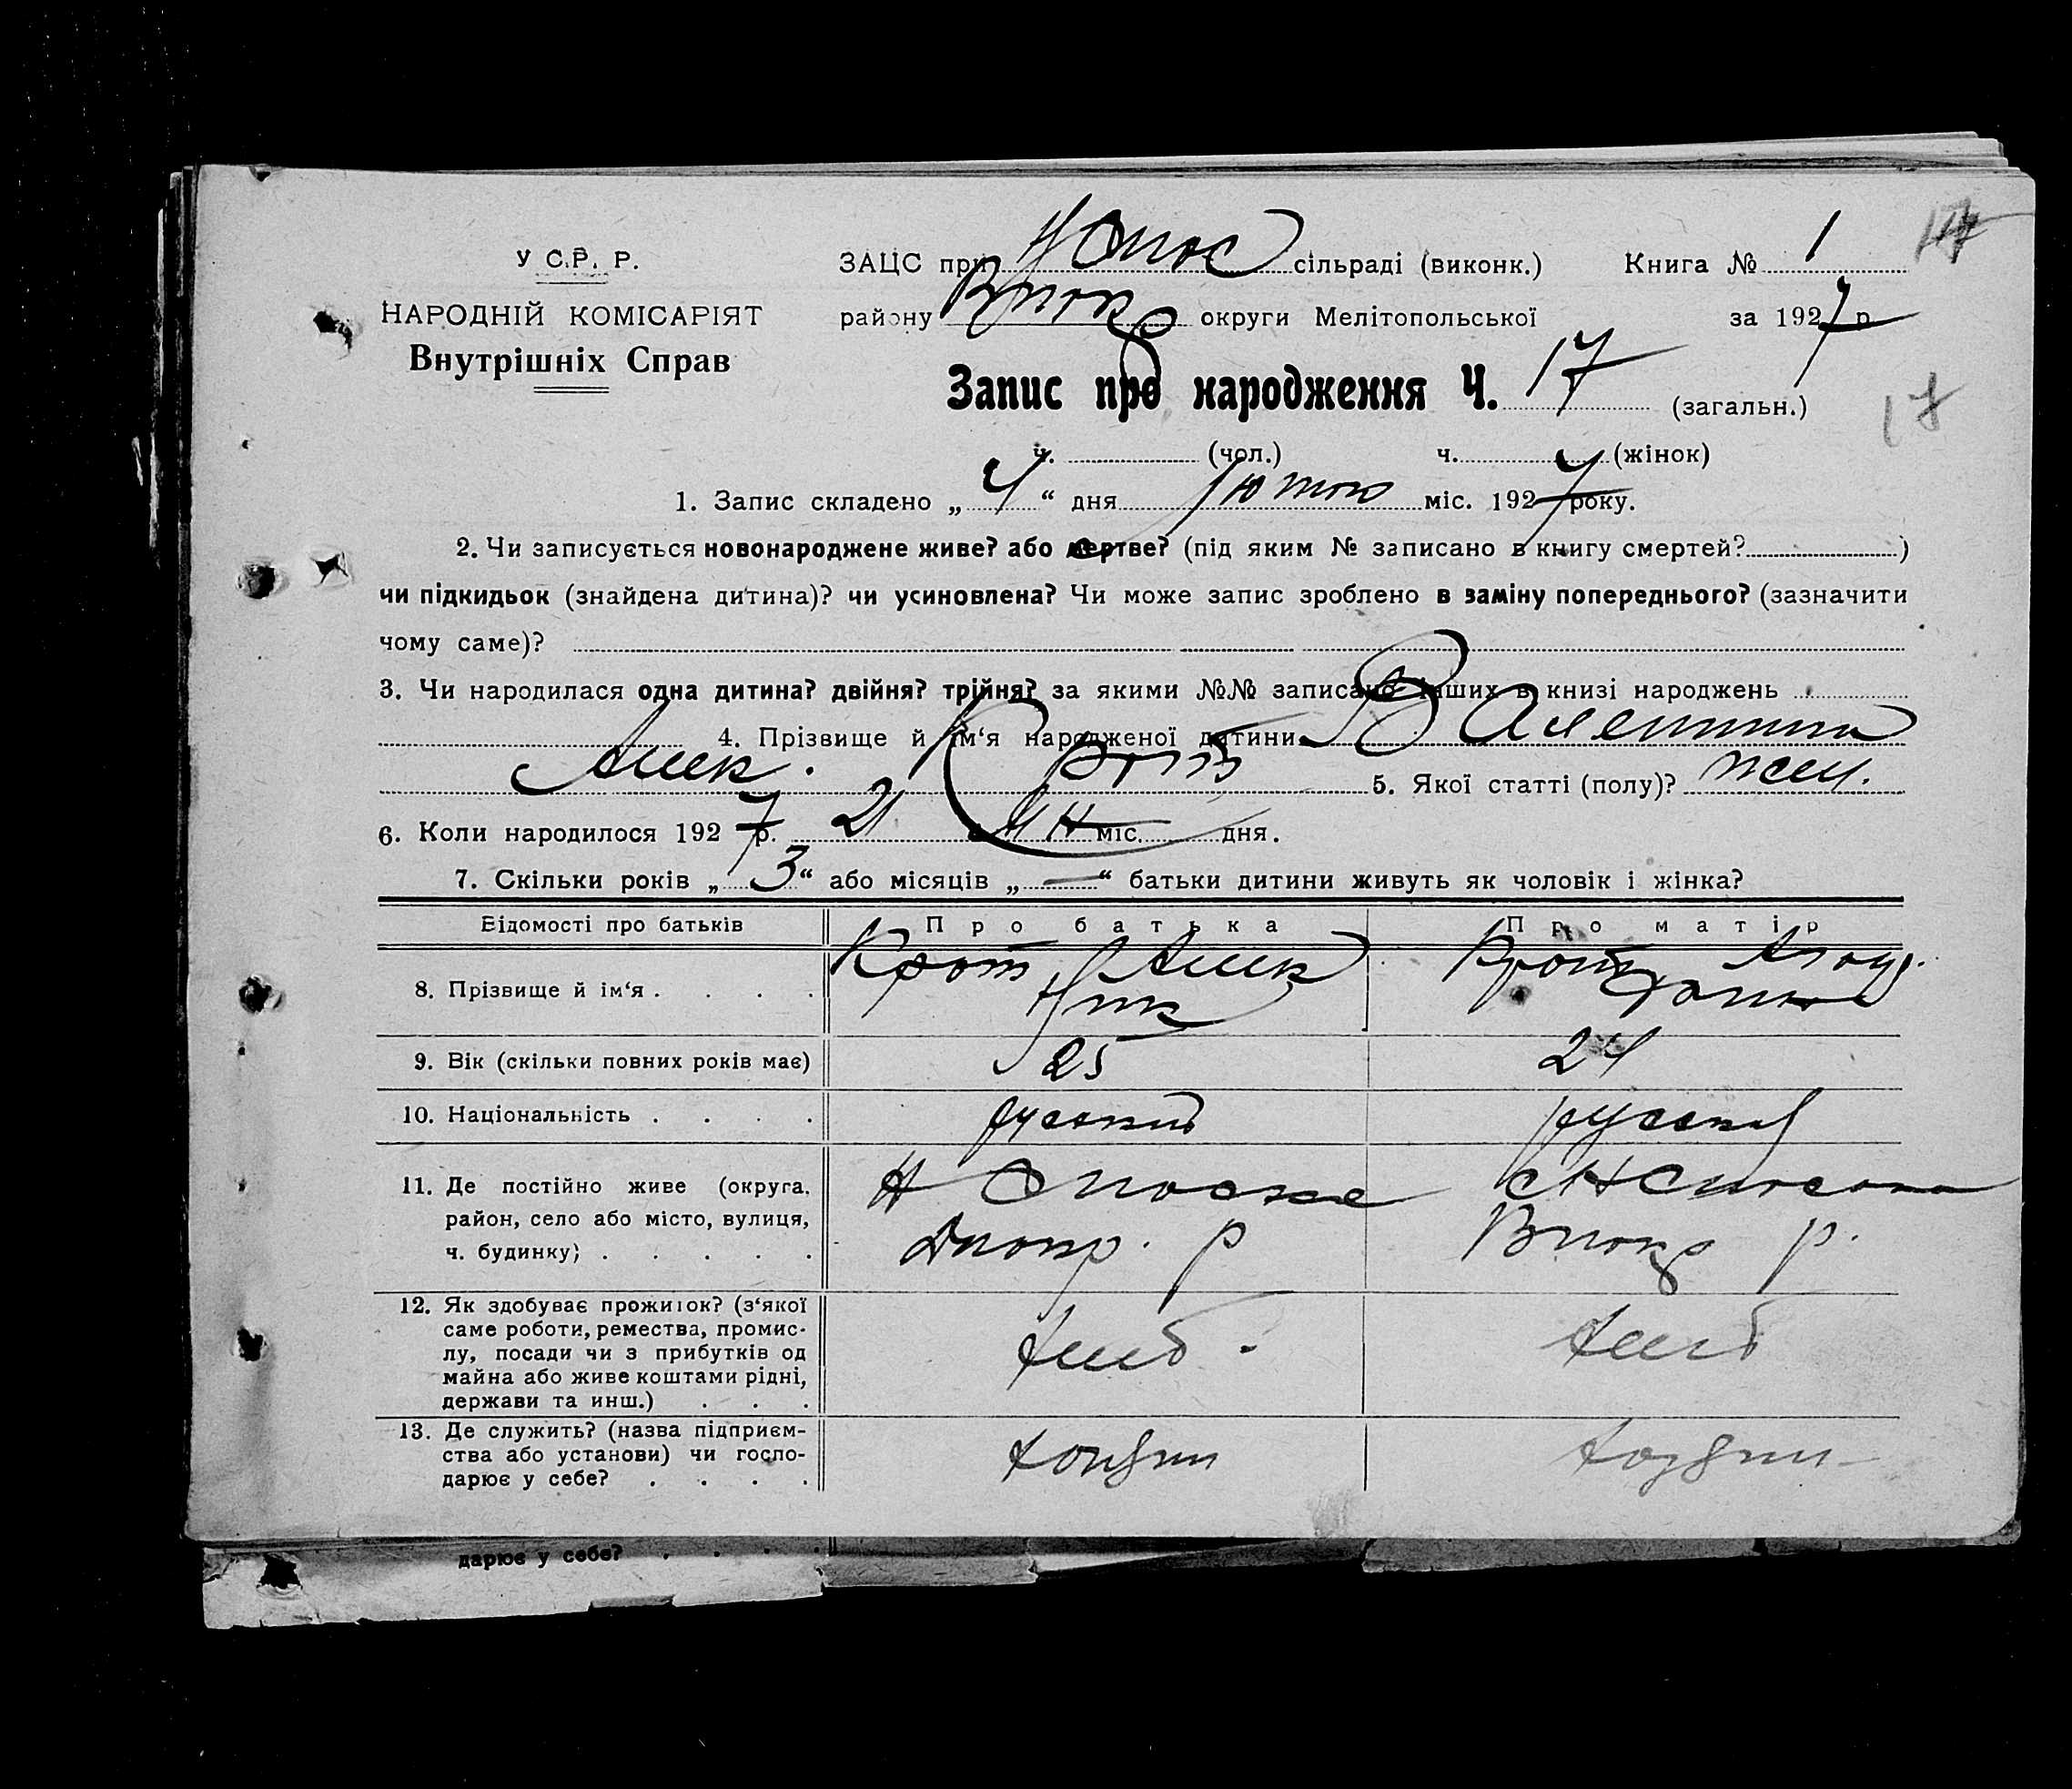 У С.Р. Р.
НАРОДНІЙ КОМІСАРІЯТ
Внутрішніх Справ
ЗАЦС при сільраді (виконк.) Книга № 1
району округи Мелітопольської за 1927 р
Запис про народження Ч. 17 (загальн.)
17
ч. (чол.) ч. (жінок)
1. Запис складено „ 4 “ дня лютого міс. 1927 року.
2. Чи записується новонароджене живе? або мертве? (під яким № записано в книгу смертей? )
чи підкидьок (знайдена дитина)? чи усиновлена? Чи може запис зроблено в заміну попереднього? (зазначити
чому саме)?
3. Чи народилася одна дитина? двійня? трійня? за якими №№ записано інших в книзі народжень
4. Прізвище й ім‘я народженої дитини Валентина
Алек. Крот 5. Якої статті (полу)? жен.
6. Коли народилося 1927 р. 21 міс. дня.
7. Скільки років „ 3 “ або місяців „ — “ батьки дитини живуть як чоловік і жінка?
Відомості про батьків Про батька Про матір
8. Прізвище й ім‘я . . . . Крот Алек Ник Крот
9. Вік (скільки повних років має) 25 24
10. Національність . . . . русский русская
11. Де постійно живе (округа,
район, село або місто, вулиця,
ч. будинку) . . . . .
12. Як здобуває прожиток? (з‘якої
саме роботи, ремества, промис-
лу, посади чи з прибутків од
майна або живе коштами рідні,
держави та инш.) . . . хлеб. хлеб
13. Де служить? (назва підприєм-
ства або установи) чи госпо-
дарює у себе? . . . .
дарює у себе? . . . .